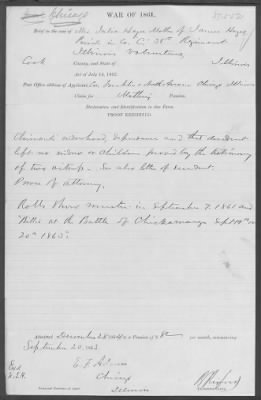 Chicago
WAR OF 1861.
Brief in the case of Mrs. Julia Hays Mother of James Hays
Private in Co. "C" 38th Regiment
Illinois Volunteers
Cook County, and State of Illinois
Act of July 14, 1862.
Post Office address of Applicant, Cor Franklin & Chicago Illinois
Claim for Mother's Pension.
Declaration and Identification in Due Form.
PROOF EXHIBITED.
Claimants widowhood, dependence and that decedent
left no widow or children proved by the testimony
of two witnesses. See also letter of decedent.
Power of Attorney.
Rolls show muster in September 7. 1861 and
Killed at the Battle of Chickamauga Sept 19th or
20th 1863.
Admitted December 28 to a Pension of $8 per month, commencing
September 20. 1863.
Chicago
Illinois